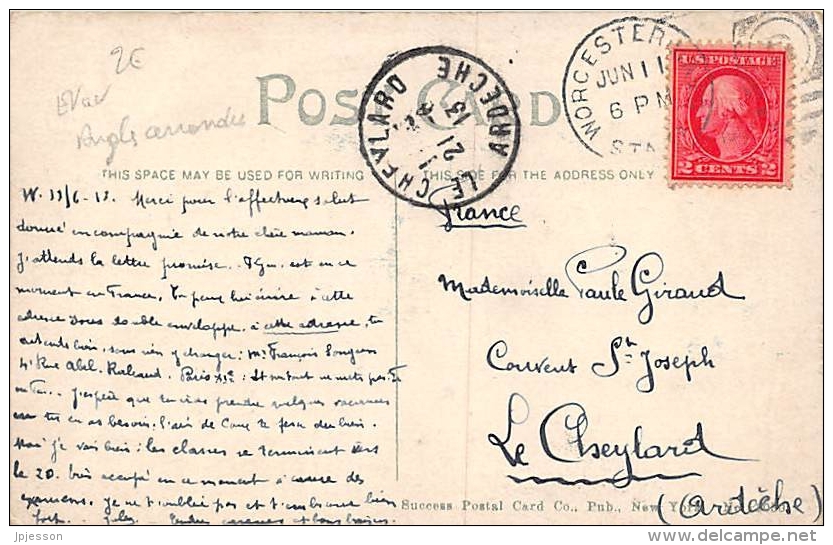 2€
Angle arrondie
POST CARD
WORCESTER
JUN 11
6 PM
STA
LE CHEYLARD
13
21
ARDECHE
U.S. POSTAGE
2 CENTS 2
THIS SPACE MAY BE USED FOR WRITING
THIS SIDE FOR THE ADDRESS ONLY
W. 11/6-13. Merci pour l'affectueux salut
donné en compagnie de notre chère maman.
J'attends la lettre promise. est en ce
moment en France. Tu peux lui écrire à cette
adresse sous double enveloppe, à cette adresse, tu
entends bien, sans rien y changer: Mr François
4 Rue Abel-Rabaud. Paris XIe: Et surtout ne mets pas
J'espère que tu iras prendre quelques vacances
tu en as besoin. l'air de te fera du bien.
Moi je vais bien: les classes se terminent vers
le 20. très occupé en ce moment à cause des
examens. Je ne t'oublie pas et t'embrasse bien
fort. Jules. Tendres caresses et bons baisers.
France
Mademoiselle Paule Giraud
Couvent St Joseph
Le Cheylard
(Ardèche)
Success Postal Card Co., Pub., New York. No.
jpjesson
delcampe.net